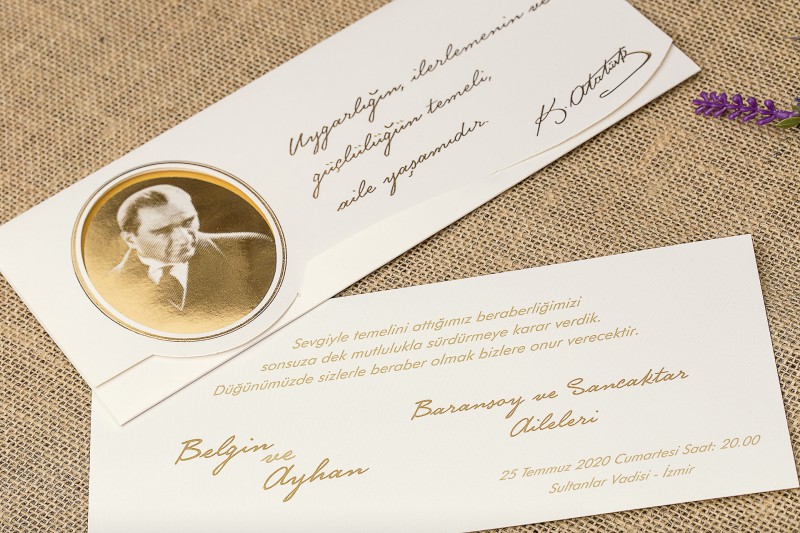 Uygarlığın, ilerlemenin ve
güçlülüğün temeli,
aile yaşamıdır.
K. Atatürk
Sevgiyle temelini attığımız beraberliğimizi
sonsuza dek mutlulukla sürdürmeye karar verdik.
Düğünümüzde sizlerle beraber olmak bizlere onur verecektir.
Belgin
ve
Ayhan
Baransoy ve Sancaktar
Aileleri
25 Temmuz 2020 Cumartesi Saat: 20.00
Sultanlar Vadisi - İzmir